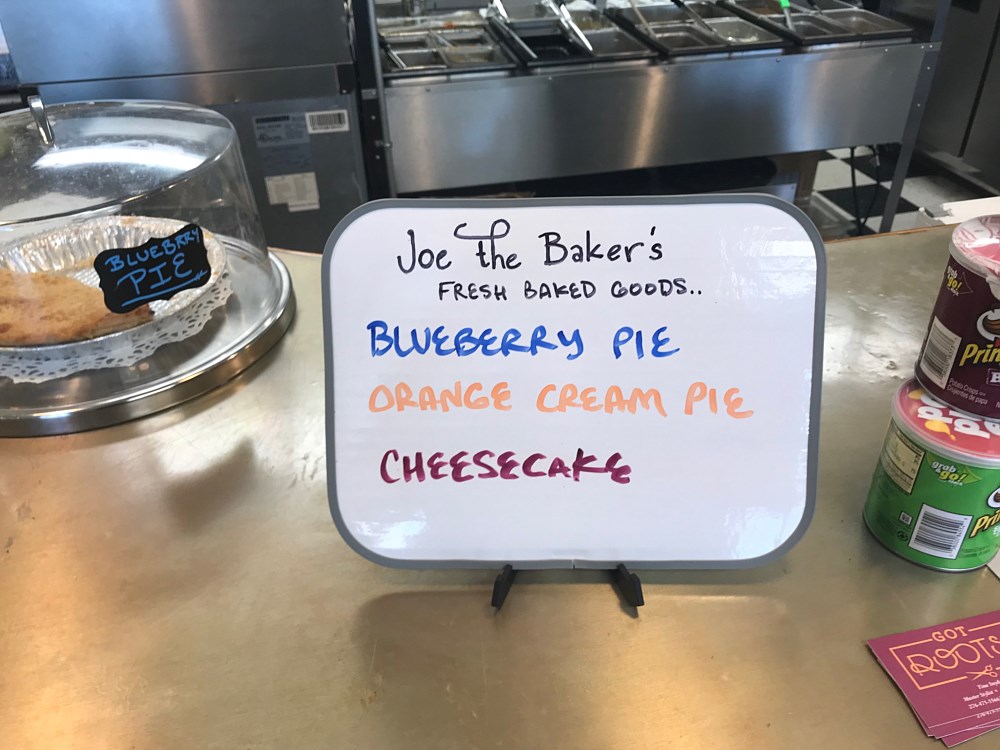 Joe the Baker's
FRESH BAKED GOODS..
BLUEBERRY PIE
ORANGE CREAM PIE
CHEESECAKE
BLUEBRRY
PIE
grab
&go!
Prin
grab
&go!
Pri
GOT
ROOTS